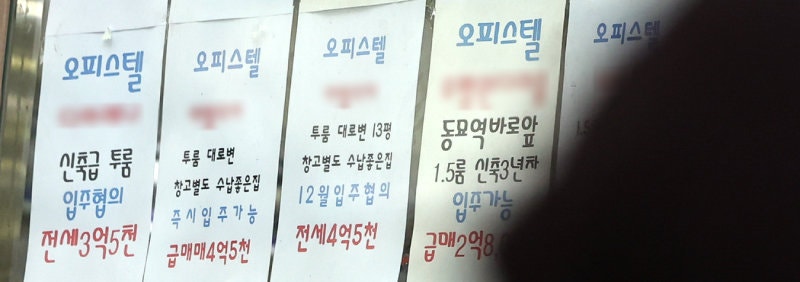 오피스텔
신축급 투룸
입주협의
전세3억5천
오피스텔
투룸 대로변
창고별도 수납좋은집
즉시입주가능
급매매4억5천
오피스텔
투룸 대로변 13평
창고별도 수납좋은집
12월입주협의
전세4억5천
오피스텔
동묘역바로앞
1.5룸 신축3년차
입주가능
급매2억8,
오피스텔